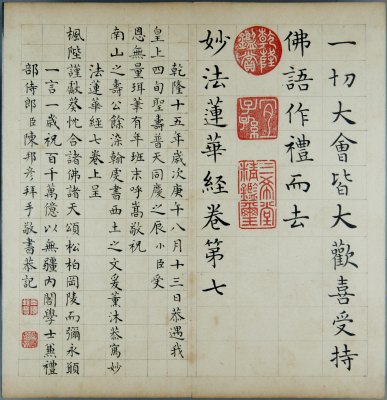 一切大會皆大歡喜受持
佛語作禮而去
乾隆鑑賞
宜子孫
三希堂精鑑璽
妙法蓮華經卷第七
乾隆十五年歲次庚午八月十三日恭遇我
皇上四旬聖壽普天同慶之辰小臣受
恩無量珥筆有年班末呼嵩敬祝
南山之壽公餘染翰虔書西土之文爰薰沐恭寫妙
法蓮華經七卷上呈
楓陛謹獻葵忱合諸佛諸天頌松柏岡陵而彌永願
一言一歲祝百千萬億以無疆內閣學士兼禮
部侍郎臣陳邦彥拜手敬書恭記